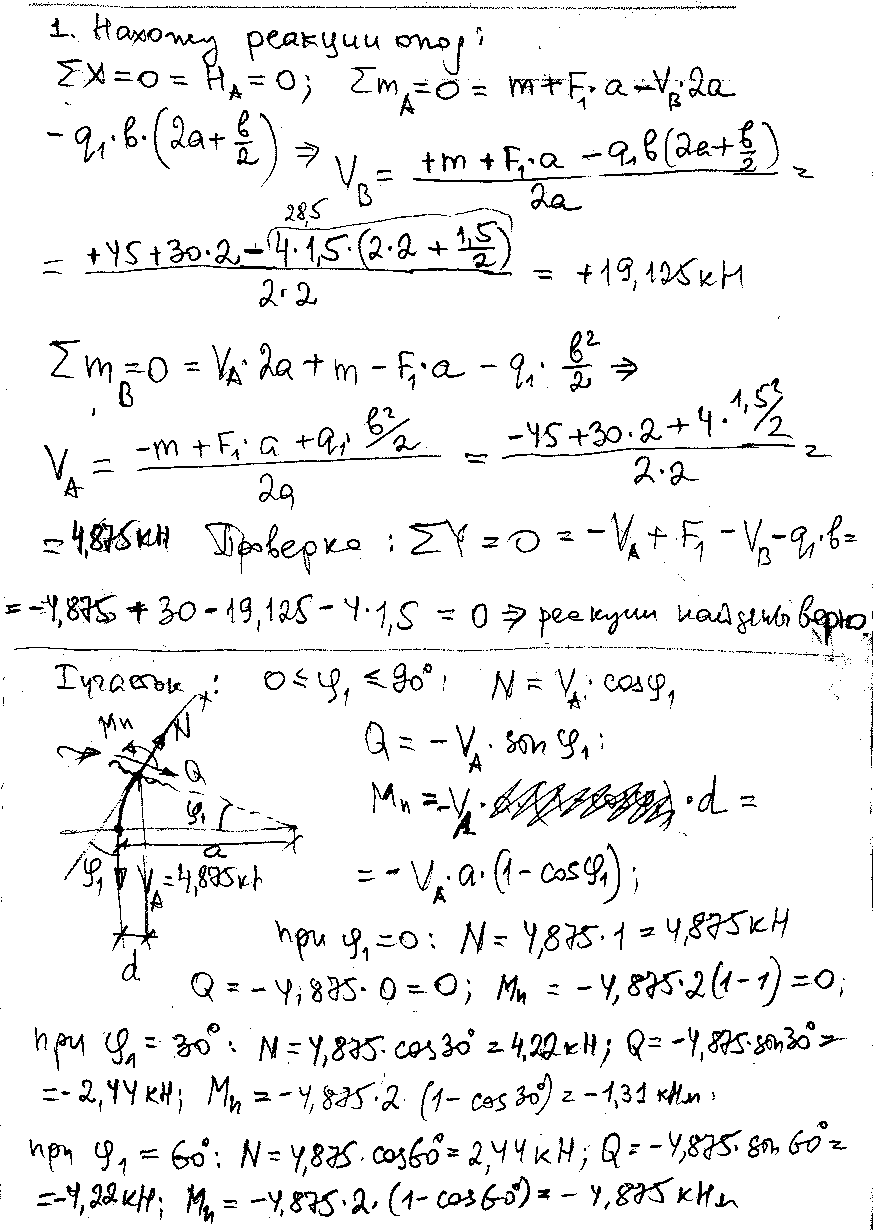 1. Нахожу реакции опор:
ΣX=0 = H_A=0; Σm_A=0 = m+F₁·a-V_B·2a
-q₁·в·(2a+в/2) ⇒ V_B = (+m+F₁·a-q₁в(2a+в/2))/2a =
28,5
= (+45+30·2-4·1,5·(2·2+1,5/2))/2·2 = +19,125кН
Σm_B=0 = V_A·2a+m-F₁·a-q₁·в²/2 ⇒
V_A = (-m+F₁·a+q₁·в²/2)/2a = (-45+30·2+4·1,5²/2)/2·2 =
=4,875кН Проверка: ΣY=0=-V_A+F₁-V_B-q₁·в=
=-4,875+30-19,125-4·1,5=0 ⇒ реакции найдены верно
I участок: 0≤φ₁≤90°; N=V_A·cosφ₁
Mи N Q
Q=-V_A·sinφ₁;
Mи=-V_A· ·d=
φ₁
a
φ₁ V_A=4,875кН
=-V_A·a·(1-cosφ₁);
d
при φ₁=0: N=4,875·1=4,875кН
Q=-4,875·0=0; Mи=-4,875·2(1-1)=0;
при φ₁=30°: N=4,875·cos30°=4,22кН; Q=-4,875·sin30°=
=-2,44кН; Mи=-4,875·2·(1-cos30°)=-1,31кНм;
при φ₁=60°: N=4,875·cos60°=2,44кН; Q=-4,875·sin60°=
=-4,22кН; Mи=-4,875·2·(1-cos60°)=-4,875кНм